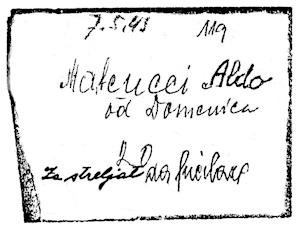 7.5.45 119
Mateucci Aldo
od Domenica
Za streljat da fucilare